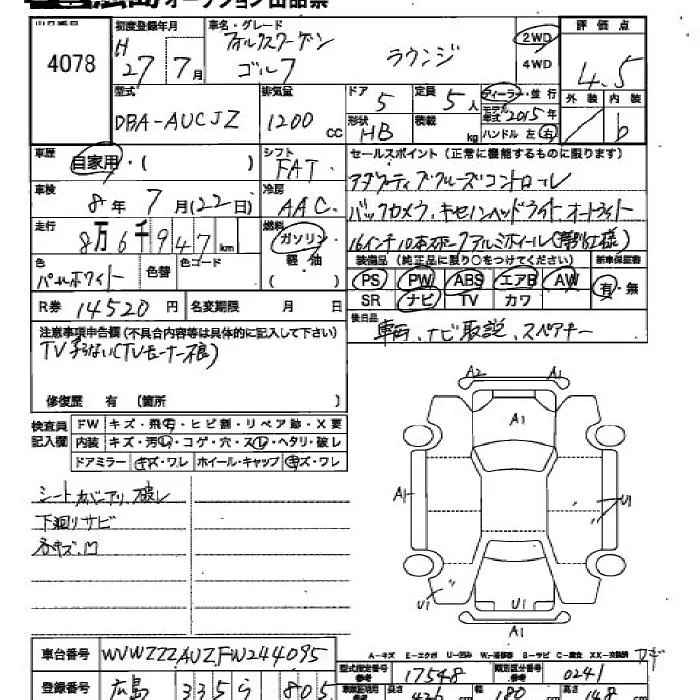 オークション出品票
4078
初度登録年月
H 27年 7月
車名・グレード
フォルクスワーゲン
ゴルフ ラウンジ
2WD
4WD
評価点
4.5
型式
DBA-AUCJZ
排気量
1200 cc
ドア 5
形状 HB
定員 5人
積載 kg
ディーラー・並行
モデル年式 2015年
ハンドル 左 右
外装 内装
b
車歴
自家用・( )
シフト
FAT
車検
8年 7月(22日)
冷房
AAC
走行
8万6千947km
燃料
ガソリン
軽・油
( )
色
パールホワイト
色替
色コード
セールスポイント(正常に機能するものに限ります)
アダプティブクルーズコントロール
バックカメラ、キセノンヘッドライト オートライト
16インチ10本スポークアルミホイール(特別仕様)
装備品(純正品に限り○をつけてください)
新車保証書
PS PW ABS エアB AW
SR ナビ TV カワ
有・無
R券 14520円
名変期限 月 日
後日品
車両、ナビ取説、スペアキー
注意事項申告欄(不具合内容等は具体的に記入して下さい)
TV映らない(TVチューナー不良)
修復歴 有 (箇所 )
検査員記入欄
FW キズ・飛石・ヒビ割・リペア跡・X要
内装 キズ・汚れ・コゲ・穴・スレ・ヘタリ・破レ
ドアミラー キズ・ワレ ホイール・キャップ キズ・ワレ
シートカバーアリ 破レ
下廻りサビ
各キズ、凹
A2 A1
A1
A1
U1
U1
U1
A1
A-キズ E-エクボ U-凹み W-補修跡 S-サビ C-腐食 XX-交換済
車台番号 WVWZZZAUZFW244095
型式指定番号 17548
類別区分番号 0241
登録番号 広島 335 ら 805
長さ 426 cm
180 cm
148 cm